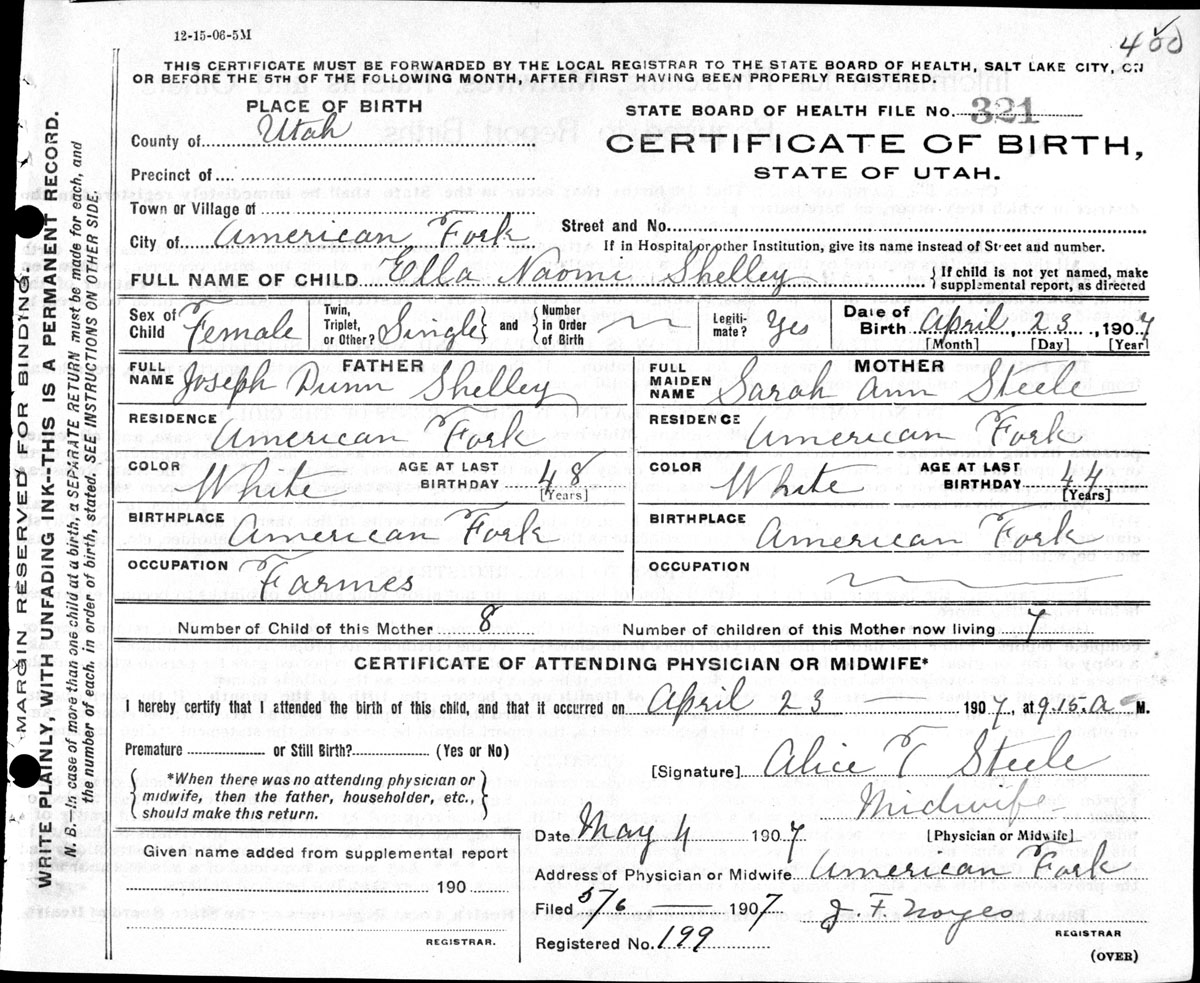 12-15-06-5M
400
THIS CERTIFICATE MUST BE FORWARDED BY THE LOCAL REGISTRAR TO THE STATE BOARD OF HEALTH, SALT LAKE CITY, ON
OR BEFORE THE 5TH OF THE FOLLOWING MONTH, AFTER FIRST HAVING BEEN PROPERLY REGISTERED.
PLACE OF BIRTH
STATE BOARD OF HEALTH FILE No. 321
County of Utah
CERTIFICATE OF BIRTH,
STATE OF UTAH.
Precinct of
Town or Village of
Street and No.
City of American Fork
If in Hospital or other Institution, give its name instead of Street and number.
FULL NAME OF CHILD Ella Naomi Shelley
If child is not yet named, make
supplemental report, as directed
Sex of Child Female
Twin, Triplet, or Other? Single and Number in Order of Birth
Legitimate? Yes
Date of Birth April, 23, 1907
[Month] [Day] [Year]
FATHER
FULL NAME Joseph Dunn Shelley
RESIDENCE American Fork
COLOR White AGE AT LAST BIRTHDAY 48
[Years]
BIRTHPLACE American Fork
OCCUPATION Farmer
MOTHER
FULL MAIDEN NAME Sarah Ann Steele
RESIDENCE American Fork
COLOR White AGE AT LAST BIRTHDAY 44
[Years]
BIRTHPLACE American Fork
OCCUPATION
Number of Child of this Mother 8
Number of children of this Mother now living 7
CERTIFICATE OF ATTENDING PHYSICIAN OR MIDWIFE*
I hereby certify that I attended the birth of this child, and that it occurred on April 23 1907, at 9.15. a M.
Premature or Still Birth? (Yes or No)
*When there was no attending physician or
midwife, then the father, householder, etc.,
should make this return.
[Signature] Alice T Steele
Midwife
[Physician or Midwife]
Date May 4 1907
Given name added from supplemental report
190
REGISTRAR.
Address of Physician or Midwife American Fork
Filed 5/6 1907 J. F. Noyes
REGISTRAR
Registered No. 199
(OVER)
MARGIN RESERVED FOR BINDING
WRITE PLAINLY, WITH UNFADING INK--THIS IS A PERMANENT RECORD.
N. B.—In case of more than one child at a birth, a SEPARATE RETURN must be made for each, and
the number of each, in order of birth, stated. SEE INSTRUCTIONS ON OTHER SIDE.